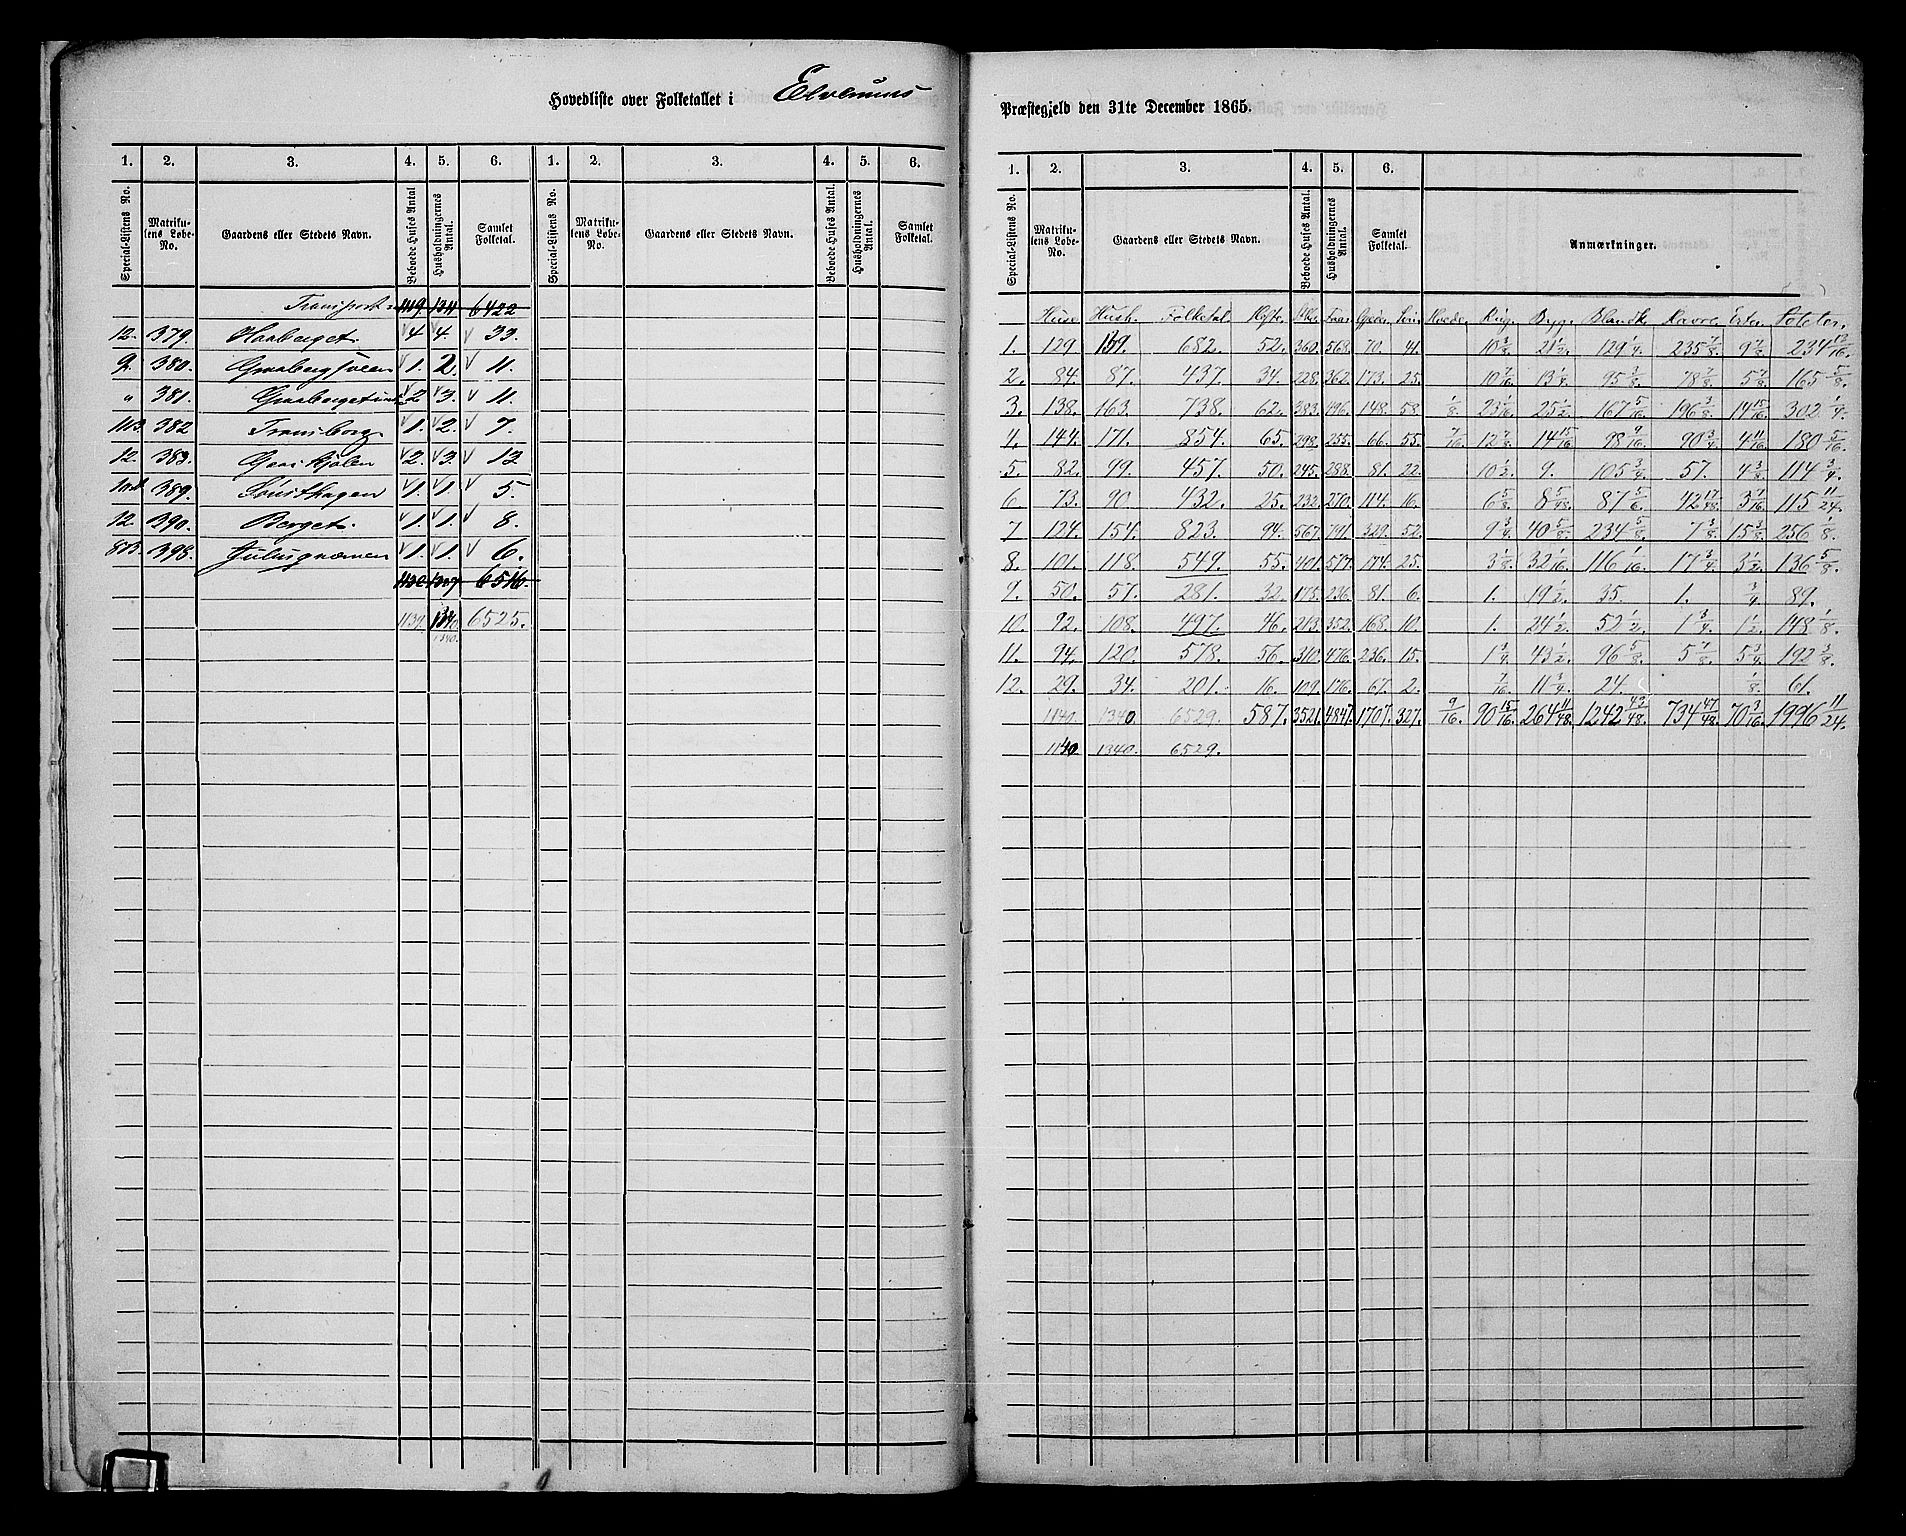 Hovedliste over Folketallet i Elverums
1. 2. 3. 4. 5. 6. 1. 2. 3. 4. 5. 6.
Special-Listens No. Matrikulens Løbe-No. Gaardens eller Stedets Navn. Beboede Huses Antal Husholdningernes Antal. Samlet Folketal. Special-Listens No. Matrikulens Løbe-No. Gaardens eller Stedets Navn. Beboede Huses Antal. Husholdningernes Antal. Samlet Folketal.
Transport 6422
12. 379. Haaberget. 4. 4. 33.
9. 380. Graabergsveen 1. 2. 11.
" 381. 2 3. 11.
382 Transborg 1. 2. 7.
12. 383. 2. 3. 13.
389. 1. 1. 5.
12. 390. Berget. 1. 1. 8.
398. 1. 1. 6.
6516.
1139. 1340. 6525.
1340.
Præstegjeld den 31te December 1865.
1. 2. 3. 4. 5. 6.
Special-Listens No. Matrikulens Løbe-No. Gaardens eller Stedets Navn. Beboede Huses Antal. Husholdningernes Antal. Samlet Folketal. Anmærkninger.
Huse Hush. Folketal. Heste. Faar Svin Hvede. Rug. Byg. Blandk. Havre. Erter. Poteter.
1. 129 159. 682. 52. 360. 568. 70. 41. 10 3/8. 21 1/2. 129 1/4. 235 7/8. 9 7/8. 234 13/16.
2. 84. 87. 437. 34. 228. 362. 173. 25. 10 7/16. 13 1/4. 95 3/8. 78 7/8. 5 7/8. 165 5/8.
3. 138. 163. 738. 62. 383. 496. 148. 58. 1/8. 23 1/16. 25 1/2. 167 5/16. 196 3/8. 14 15/16. 302 1/4.
4. 144. 171. 854. 65. 298. 255. 66. 55. 7/16. 12 7/8. 14 15/16. 98 9/16. 90 3/4. 4 11/16. 180 5/16.
5. 82. 99. 457. 50. 245. 288. 81. 22. 10 1/2. 9. 105 3/4. 57. 4 3/8. 114 3/4.
6. 73. 90. 432. 25. 232. 270. 114. 16. 6 5/8. 8 5/48. 87 5/6. 42 17/48. 3 7/16. 115 11/24.
7 124. 154. 823. 94. 567. 791. 329. 52. 9 3/8. 40 5/8. 234 5/8. 7 3/8. 15 3/8. 256 1/8.
8. 101. 118. 549. 55. 401. 577. 174. 25. 3 1/8. 32 1/16. 116 1/16. 17 3/4. 3 1/2. 136 5/8.
9. 50. 57. 281. 32. 175. 236. 81. 6. 1. 19 1/2. 35. 1. 3/4. 89.
10. 92. 108. 497. 46. 213. 352. 168. 10. 1. 24 1/2. 52 1/2. 1 3/4. 1/2. 148 1/8.
11. 94. 120. 578. 56. 310. 476. 236. 15. 1 3/4. 43 1/2. 96 5/8. 5 7/8. 5 3/4. 192 3/8.
12. 29. 34. 201. 16. 109. 176. 67. 2. 7/16. 11 3/4. 24. 1/8. 61.
1140. 1340. 6529. 587. 3521. 4847. 1707. 327. 9/16. 90 15/16. 264 11/48. 1242 43/48. 734 47/48. 70 3/16. 1996 11/24.
1140 1340. 6529.